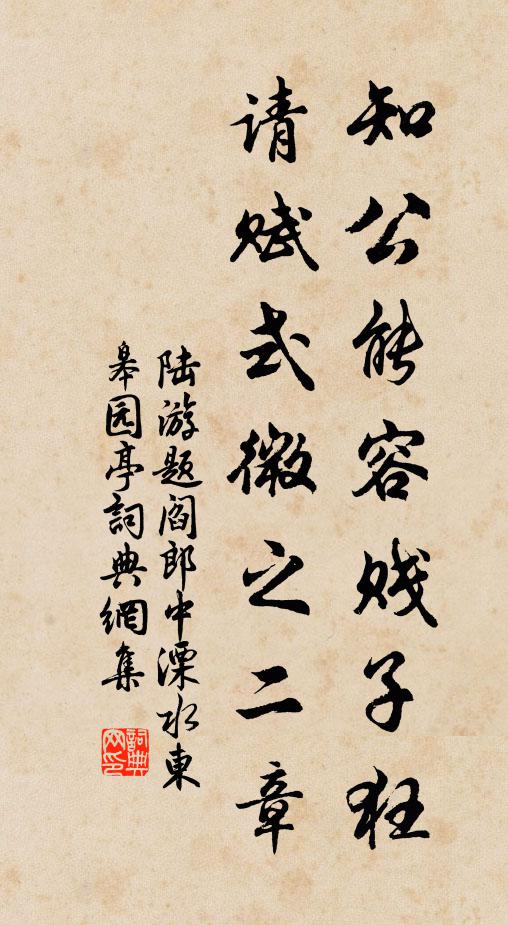 知公能容贱子狂
请赋式微之二章
陆游题阎郎中溧水東
皋园亭詞典網集
詞典
网印